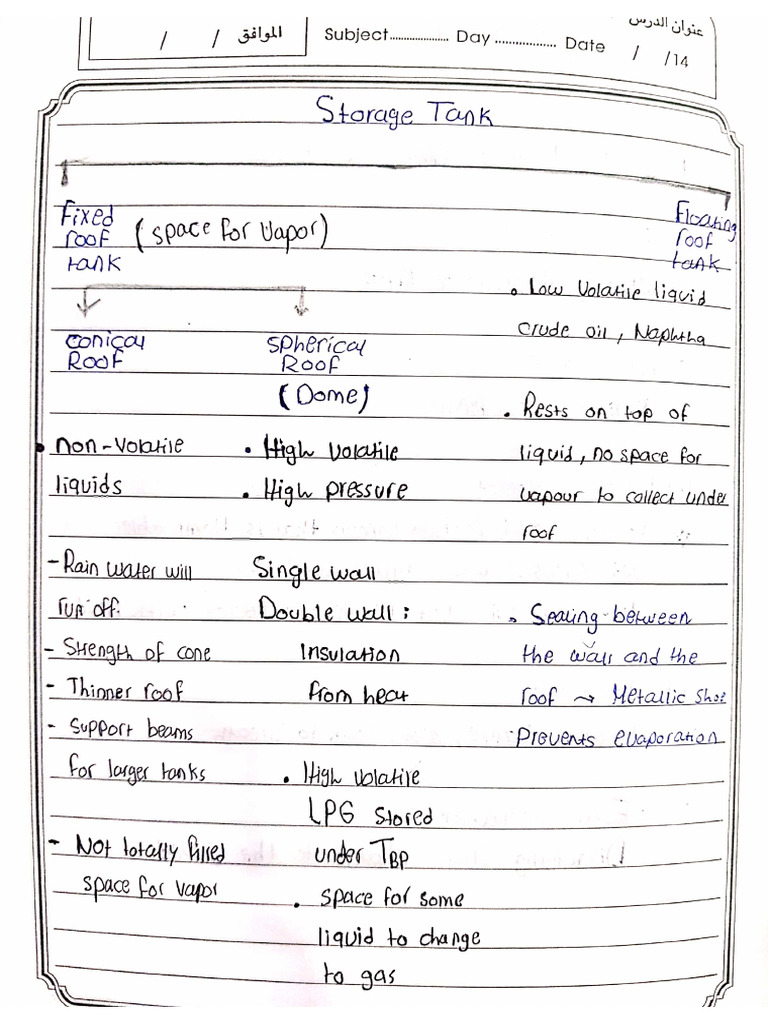 عنوان الدرس
الموافق / / Subject.................... Day .................. Date / /14
Storage Tank
Fixed
roof
tank
(space for Vapor)
Floating
roof
tank
conical
Roof
Spherical
Roof
(Dome)
• Low Volatile liquid
crude oil, Naphtha
• Rests on top of
liquid, no space for
vapour to collect under
roof
• Sealing between
the wall and the
roof → Metallic Shoe
Prevents evaporation
• non-Volatile
liquids
- Rain water will
run off.
- Strength of cone
- Thinner roof
- Support beams
for larger tanks
- Not totally filled
space for vapor
• High Volatile
• High pressure
Single wall
Double wall:
Insulation
from heat
• High Volatile
LPG Stored
under TBP
• space for some
liquid to change
to gas